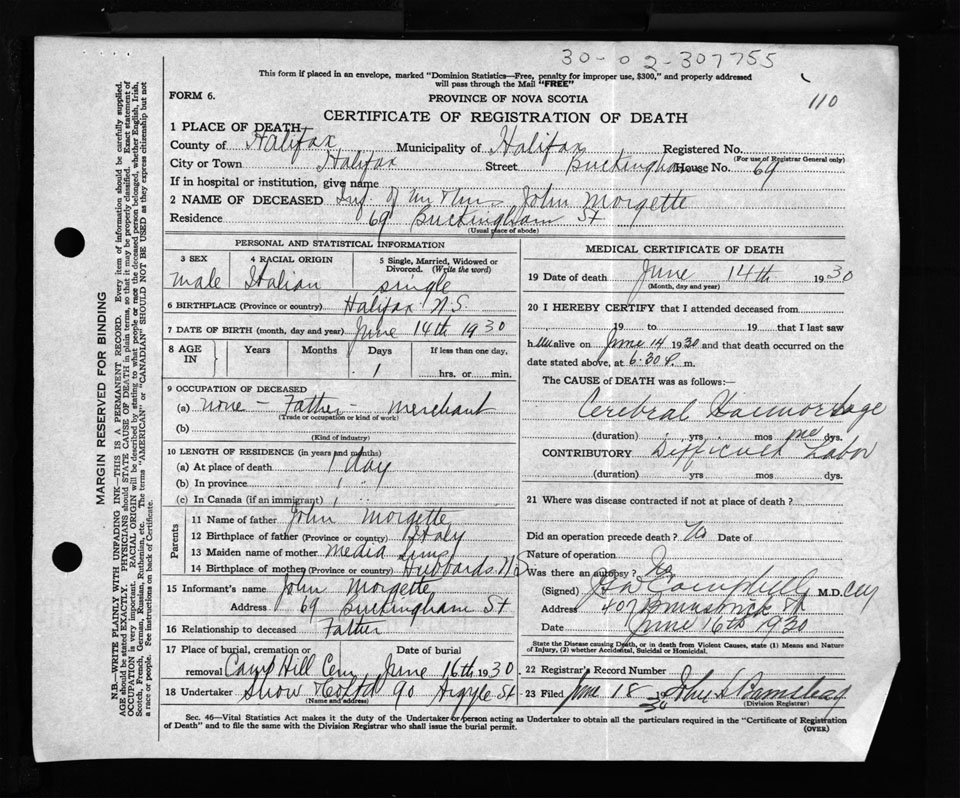 30-02-307755
This form if placed in an envelope, marked "Dominion Statistics—Free, penalty for improper use, $300," and properly addressed
will pass through the Mail "FREE"
110
FORM 6.
PROVINCE OF NOVA SCOTIA
CERTIFICATE OF REGISTRATION OF DEATH
1 PLACE OF DEATH
County of Halifax Municipality of Halifax Registered No.
(For use of Registrar General only)
City or Town Halifax Street Buckingham House No. 69
If in hospital or institution, give name
2 NAME OF DECEASED Inf. of Mr & Mrs John Morgette
Residence 69 Buckingham St
(Usual place of abode)
PERSONAL AND STATISTICAL INFORMATION
3 SEX
male
4 RACIAL ORIGIN
Italian
5 Single, Married, Widowed or
Divorced. (Write the word)
single
6 BIRTHPLACE (Province or country) Halifax N.S.
7 DATE OF BIRTH (month, day and year) June 14th 1930
8 AGE IN
Years Months Days If less than one day,
1 hrs. or min.
9 OCCUPATION OF DECEASED
(a) none - Father - merchant
(Trade or occupation or kind of work)
(b)
(Kind of industry)
10 LENGTH OF RESIDENCE (in years and months)
(a) At place of death 1 day
(b) In province " "
(c) In Canada (if an immigrant)
Parents
11 Name of father John Morgette
12 Birthplace of father (Province or country) Italy
13 Maiden name of mother Media Sims
14 Birthplace of mother (Province or country) Hubbards N S
15 Informant's name John Morgette
Address 69 Buckingham St
16 Relationship to deceased Father
17 Place of burial, cremation or Date of burial
removal Camp Hill Cem June 16th 1930
18 Undertaker Snow & Co Ltd 90 Argyle St
(Name and address)
MEDICAL CERTIFICATE OF DEATH
19 Date of death June 14th 1930
(Month, day and year)
20 I HEREBY CERTIFY that I attended deceased from
19 to 19 that I last saw
h alive on June 14 1930 and that death occurred on the
date stated above, at 6.30 P. m.
The CAUSE of DEATH was as follows:—
Cerebral Haemorrhage
(duration) yrs mos dys.
CONTRIBUTORY Difficult Labor
(duration) yrs. mos. dys.
21 Where was disease contracted if not at place of death?
Did an operation precede death? No Date of
Nature of operation
Was there an autopsy? No
(Signed) Campbell M.D.
Address 407 Brunswick St
Date June 16th 1930
State the Disease causing Death, or in death from Violent Causes, state (1) Means and Nature
of Injury, (2) whether Accidental, Suicidal or Homicidal.
22 Registrar's Record Number
23 Filed June 18 30 John
(Division Registrar)
Sec. 46—Vital Statistics Act makes it the duty of the Undertaker or person acting as Undertaker to obtain all the particulars required in the "Certificate of Registration
of Death" and to file the same with the Division Registrar who shall issue the burial permit.
(OVER)
MARGIN RESERVED FOR BINDING
N.B.—WRITE PLAINLY WITH UNFADING INK—THIS IS A PERMANENT RECORD. Every item of information should be carefully supplied.
AGE should be stated EXACTLY. PHYSICIANS should STATE CAUSE OF DEATH in plain terms, so that it may be properly classified. Exact statement of
OCCUPATION is very important. RACIAL ORIGIN will be described by stating to what people or race the deceased person belonged, whether English, Irish,
Scotch, French, German, Russian, Ruthenian, etc. The terms "AMERICAN" or "CANADIAN" SHOULD NOT BE USED as they express citizenship but not
a race or people. See instructions on back of Certificate.